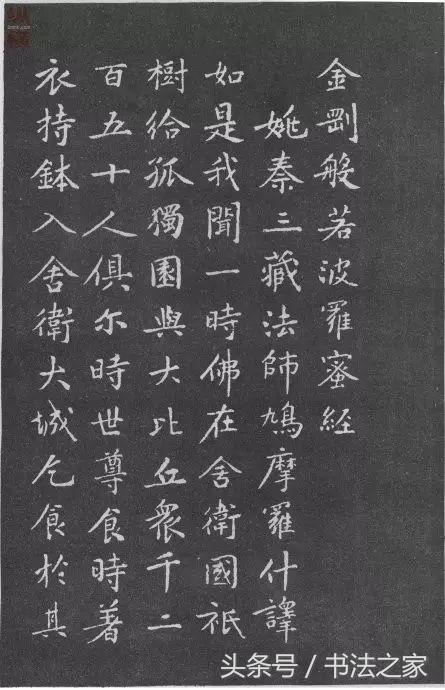 金剛般若波羅蜜經
姚秦三藏法師鳩摩羅什譯
如是我聞一時佛在舍衛國祇
樹給孤獨園與大比丘衆千二
百五十人俱尔時世尊食時著
衣持鉢入舍衛大城乞食於其
头条号 / 书法之家